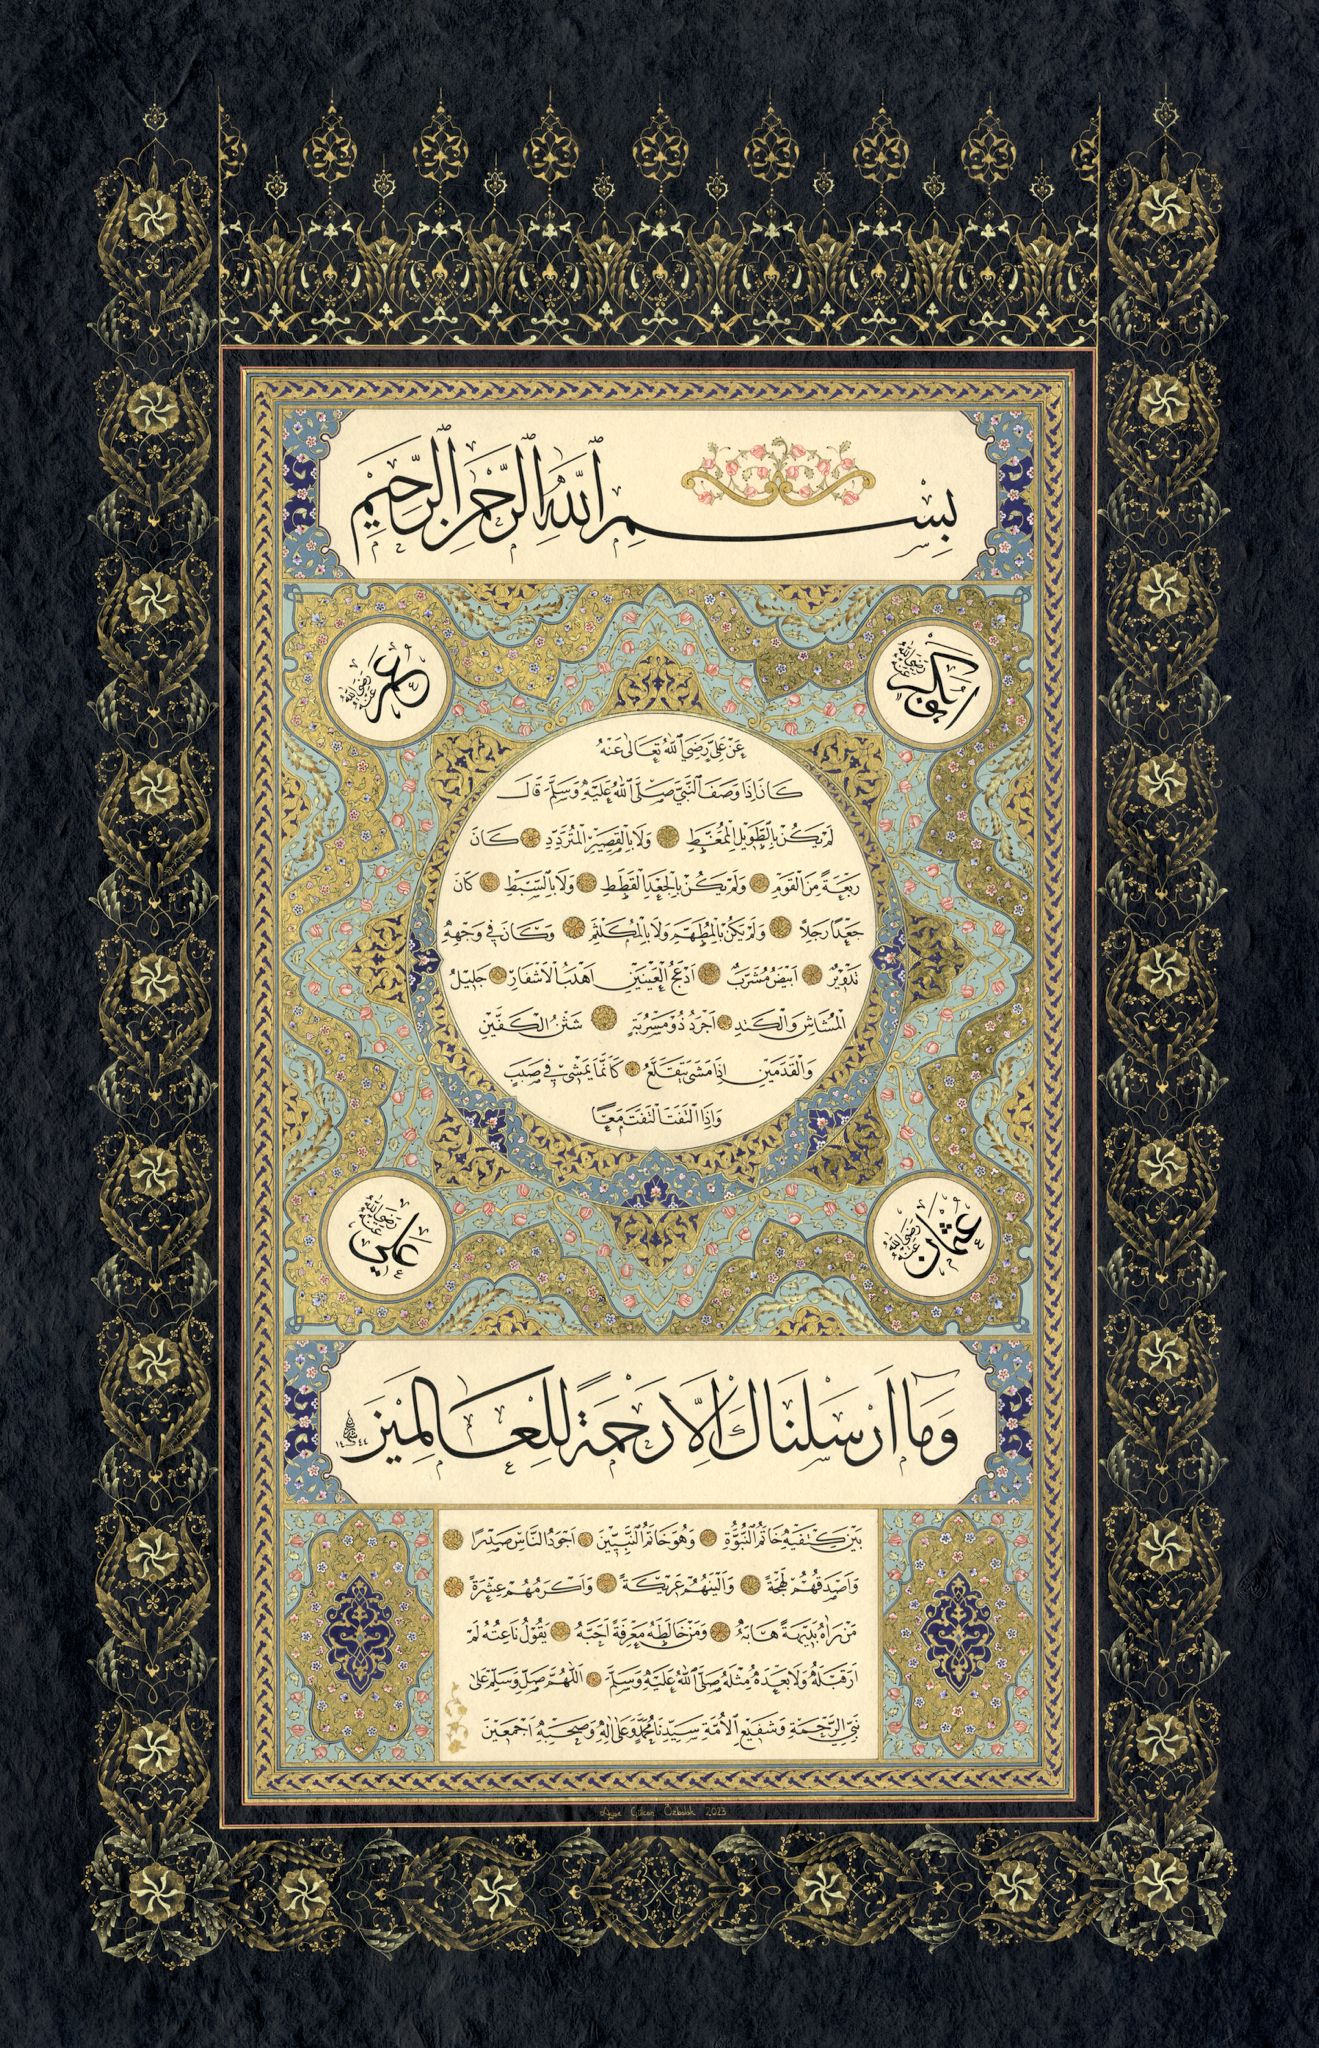 بِسْمِ اللّٰهِ الرَّحْمٰنِ الرَّحِيْمِ
ابوبكر رَضِيَ اللّٰهُ عَنْهُ
عُمَر رَضِيَ اللّٰهُ عَنْهُ
عَنْ عَلِيٍّ رَضِيَ اللّٰهُ تَعَالٰى عَنْهُ
كَانَ اِذَا وَصَفَ النَّبِيَّ صَلَّى اللّٰهُ عَلَيْهِ وَسَلَّمَ قَالَ
لَمْ يَكُنْ بِالطَّوِيْلِ الْمُمَّغِطِ وَلَا بِالْقَصِيْرِ الْمُتَرَدِّدِ كَانَ
رَبْعَةً مِنَ الْقَوْمِ وَلَمْ يَكُنْ بِالْجَعْدِ الْقَطَطِ وَلَا بِالسَّبْطِ كَانَ
جَعْدًا رَجِلًا وَلَمْ يَكُنْ بِالْمُطَهَّمِ وَلَا بِالْمُكَلْثَمِ وَكَانَ فِي وَجْهِهِ
تَدْوِيْرٌ اَبْيَضُ مُشْرَبٌ اَدْعَجُ الْعَيْنَيْنِ اَهْدَبُ الْاَشْفَارِ جَلِيْلُ
الْمُشَاشِ وَالْكَتَدِ اَجْرَدُ ذُو مَسْرُبَةٍ شَثْنُ الْكَفَّيْنِ
وَالْقَدَمَيْنِ اِذَا مَشَى يَتَقَلَّعُ كَاَنَّمَا يَمْشِيْ فِي صَبَبٍ
وَاِذَا الْتَفَتَ الْتَفَتَ مَعًا
عُثْمَان رَضِيَ اللّٰهُ عَنْهُ
عَلِي رَضِيَ اللّٰهُ عَنْهُ
وَمَا اَرْسَلْنَاكَ اِلَّا رَحْمَةً لِلْعَالَمِيْنَ
١٤٤٤
بَيْنَ كَتِفَيْهِ خَاتَمُ النُّبُوَّةِ وَهُوَ خَاتَمُ النَّبِيِّيْنَ اَجْوَدُ النَّاسِ صَدْرًا
وَاَصْدَقُهُمْ لَهْجَةً وَاَلْيَنُهُمْ عَرِيْكَةً وَاَكْرَمُهُمْ عِشْرَةً
مَنْ رَاٰهُ بَدِيْهَةً هَابَهُ وَمَنْ خَالَطَهُ مَعْرِفَةً اَحَبَّهُ يَقُوْلُ نَاعِتُهُ لَمْ
اَرَ قَبْلَهُ وَلَا بَعْدَهُ مِثْلَهُ صَلَّى اللّٰهُ عَلَيْهِ وَسَلَّمَ اَللّٰهُمَّ صَلِّ وَسَلِّمْ عَلٰى
نَبِيِّ الرَّحْمَةِ وَشَفِيْعِ الْاُمَّةِ سَيِّدِنَا مُحَمَّدٍ وَعَلٰى اٰلِهِ وَصَحْبِهِ اَجْمَعِيْنَ
Ayşe Gülcan Özbalak 2023